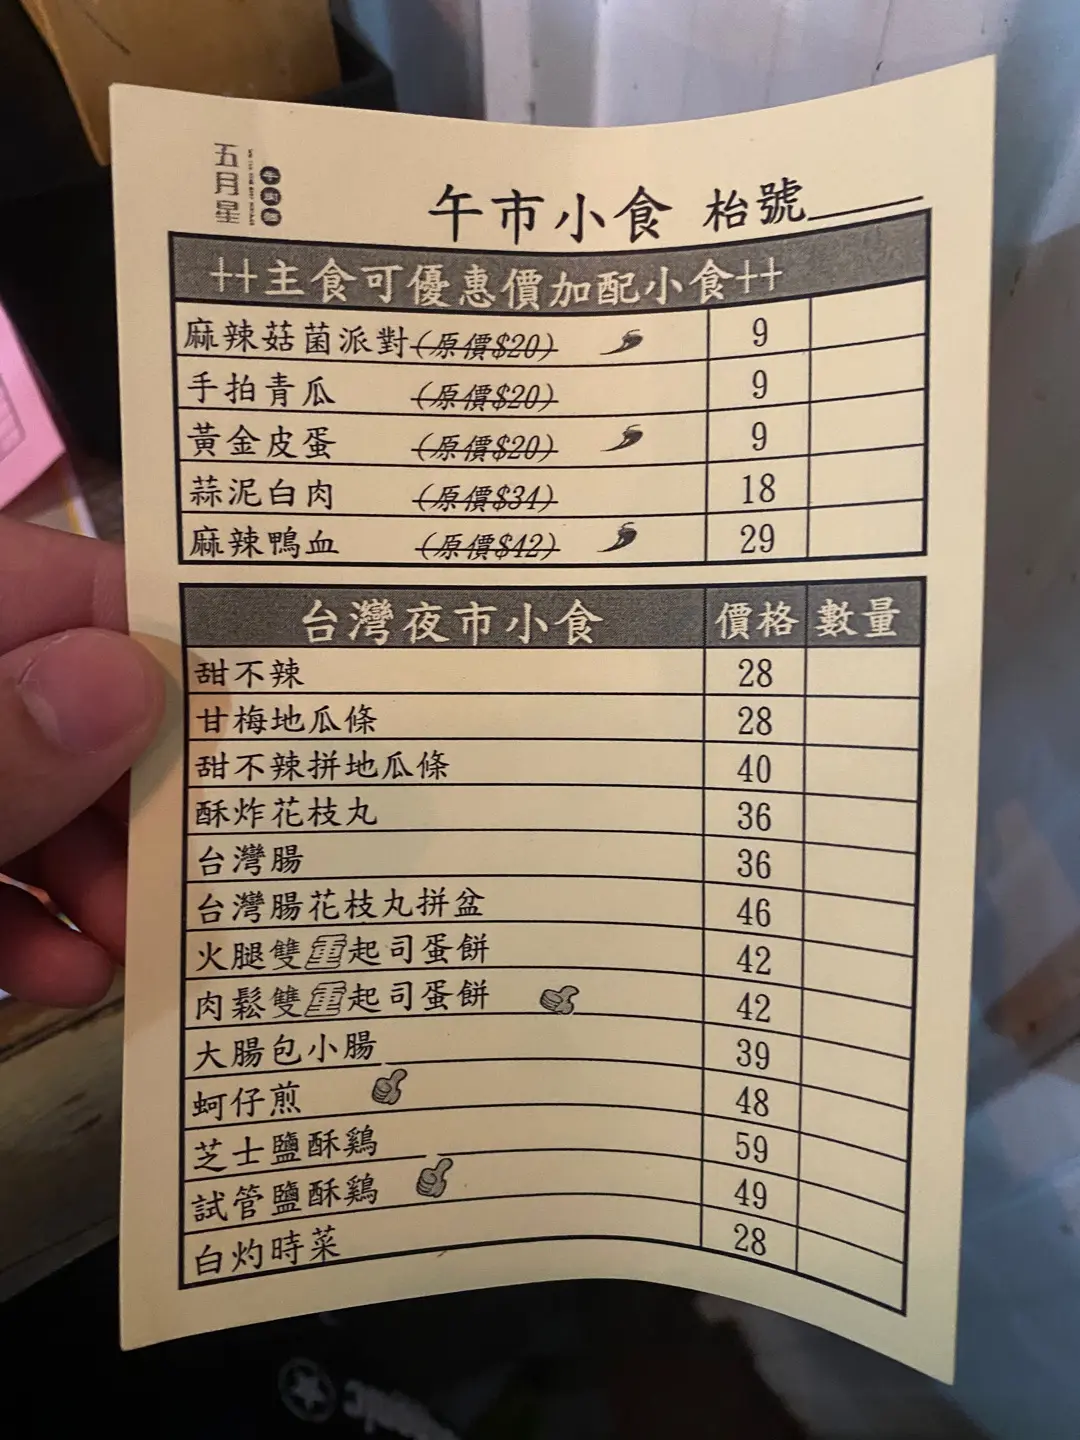 五月星
牛肉麵
午市小食 枱號
++主食可優惠價加配小食++
麻辣菇菌派對 (原價$20) 9
手拍青瓜 (原價$20) 9
黃金皮蛋 (原價$20) 9
蒜泥白肉 (原價$34) 18
麻辣鴨血 (原價$42) 29
台灣夜市小食 價格 數量
甜不辣 28
甘梅地瓜條 28
甜不辣拼地瓜條 40
酥炸花枝丸 36
台灣腸 36
台灣腸花枝丸拼盆 46
火腿雙重起司蛋餅 42
肉鬆雙重起司蛋餅 42
大腸包小腸 39
蚵仔煎 48
芝士鹽酥鷄 59
試管鹽酥鷄 49
白灼時菜 28